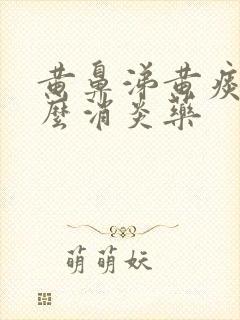 黄鼻涕黄痰
麼消炎藥
萌萌妖